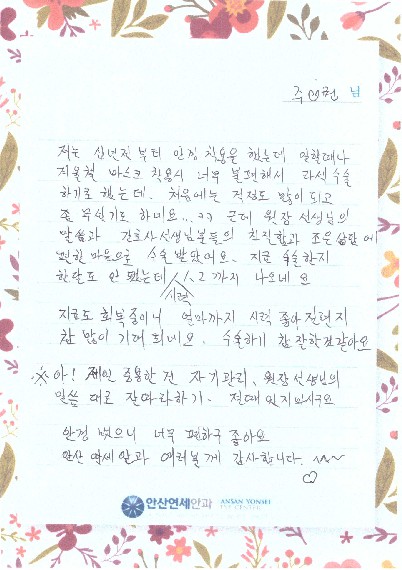 주영현 님
저는 삼년전 부터 안경 착용을 했는데 일할때나
지울철 마스크 착용시 너무 불편해서 라섹수술
하기로 했는데. 처음에는 걱정도 많이 되고
좀 무섭기도 하더요... ㅋㅋ 근데 원장선생님의
말씀과 간호사선생님분들의 친절함과 조은상담에
편한 마음으로 수술받았어요. 지금 수술한지
한달도 안 됐는데 시력 1.2까지 나오네요
지금도 회복중이니 얼마까지 시력 좋아질련지
참 많이 기대 되네요. 수술하기 참 잘한것같아요
※ 아! 제일 중용한건 자기관리, 원장선생님의
말씀 대로 잘따라하기. 절대잊지마시구요
안경 벗으니 너무 편하구 좋아요
안산연세안과 여러분께 감사합니다. ♡
안산연세안과 ANSAN YONSEI EYE CENTER